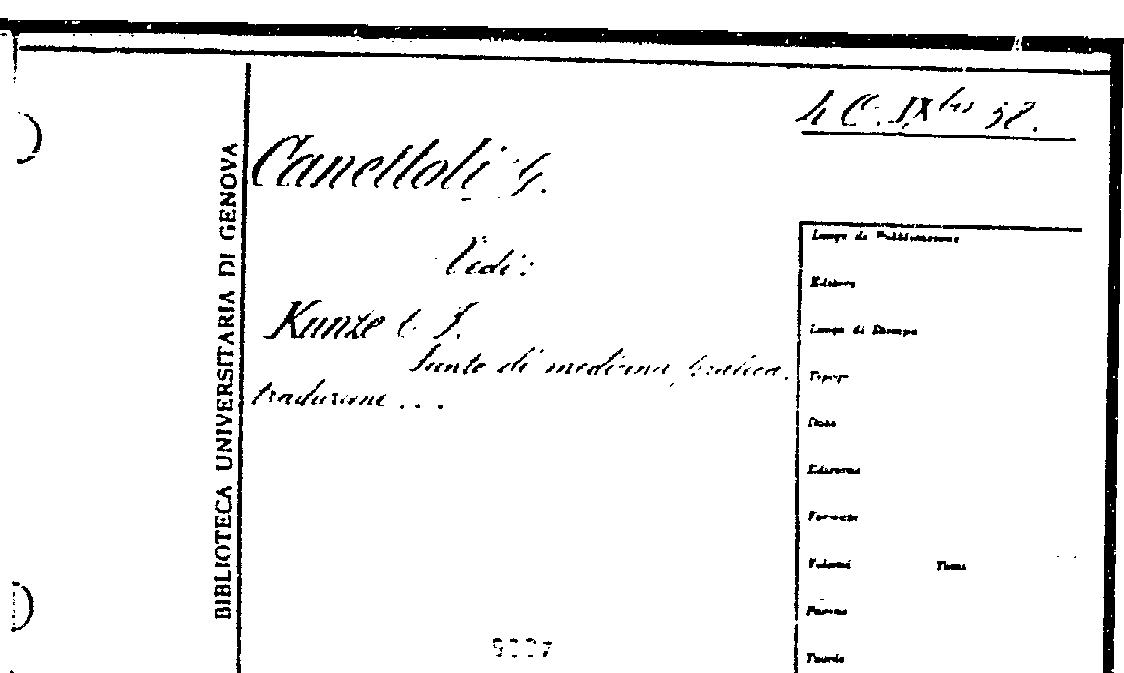 4 C. IX bis 52.
Canettoli G.
Vedi:
Kunze C. F.
Sunto di medicina pratica.
traduzione ...
BIBLIOTECA UNIVERSITARIA DI GENOVA
Luogo di Pubblicazione
Editore
Luogo di Stampa
Tipogr.
Data
Edizione
Formato
Volumi Tomi
Pagine
Tavole